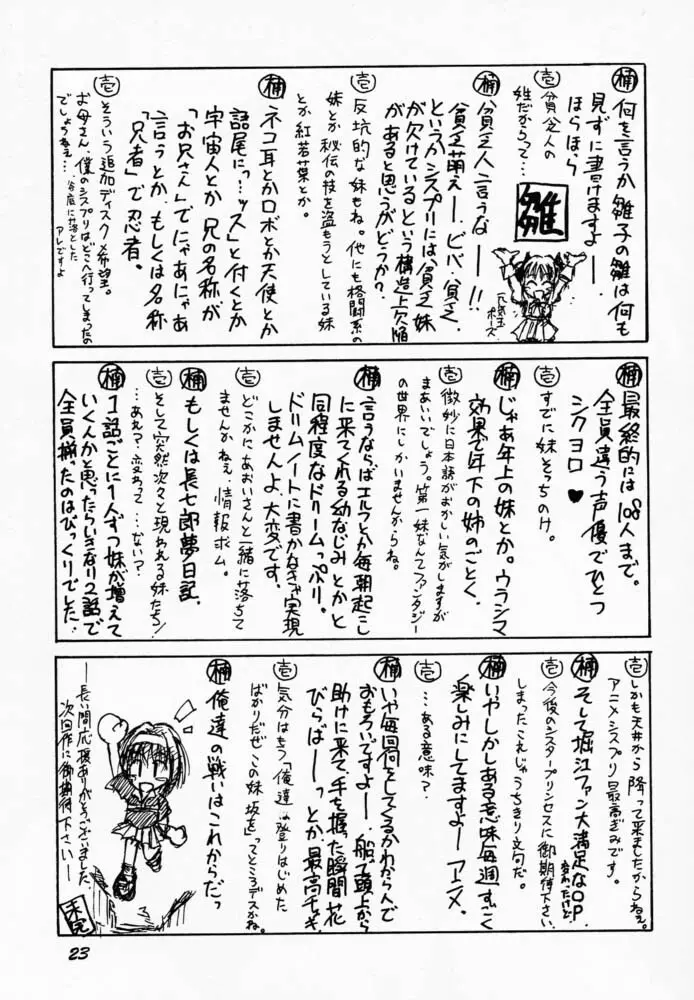 楠 何を言うか 雛子の雛は何も
見ずに書けますよー
ほらほら
壱 貧乏人の
姓だからって…
雛
元気玉
ポーズ
楠 貧乏人言うなーー!!
貧乏萌えー、ビバ、貧乏、
というかシスプリには、貧乏妹
が欠けているという構造上欠陥
があると思うがどうか?
壱 反抗的な妹もね。他にも格闘系の
妹とか秘伝の技を盗もうとしている妹
とか紅若葉とか。
楠 ネコ耳とかロボとか天使とか
語尾に「…ッス」と付くとか
宇宙人とか 兄の名称が
「お兄さん」でにゃあにゃあ
言うとか、もしくは名称
「兄者」で忍者。
壱 そういう追加ディスク〆希望。
お母さん、僕のシスプリはどこへ行ってしまったの
でしょうねえ…
谷底に落とした
アレですよ
楠 最終的には108人まで。
全員違う声優でひとつ
シクヨロ♥
壱 すでに妹そっちのけ。
楠 じゃあ年上の妹とか。ウラシマ
効果で年下の姉のごとく、
壱 微妙に日本語がおかしい気がしますが
まあいいでしょう。第一妹なんてファンタジー
の世界にしかいませんからね。
楠 言うならばエルフとか毎朝起こし
に来てくれる幼なじみとかと
同程度なドリームっぷり。
ドリームノートに書かなきゃ実現
しませんよ、大変です。
壱 どこかに、あおいさんと一緒に落ちて
ませんかねえ、情報求ム。
楠 もしくは長七郎夢日記、
壱 そして突然次々と現われる妹たち!
…あれ?変わって…ない?
楠 1話ごとに1人ずつ妹が増えて
いくんかと思ったらいきなり2話で
全員揃ったのはびっくりでした!
壱 しかも天井から降って来ましたからねぇ。
アニメシスプリ最高ぎみです。
楠 そして堀江ファン大満足なOP、
変わったけど
壱 今後のシスタープリンセスに御期待下さい、
しまったこれじゃうちきり文句だ。
楠 いやしかしある意味毎週すごく
楽しみにしてますよーアニメ。
壱 …ある意味?
楠 いや毎回何をしてくるかわからんで
おもろいですよー、船頭上から
助けに来て、手を握った瞬間花
びらばーーっとか最高チャオ。
壱 気分はもう「俺達は登りはじめた
ばかりだぜこの妹坂を」ってところデスかね。
楠 俺達の戦いはこれからだっ
——長い間応援ありがとうございました
次回作に御期待下さい——
未完
23